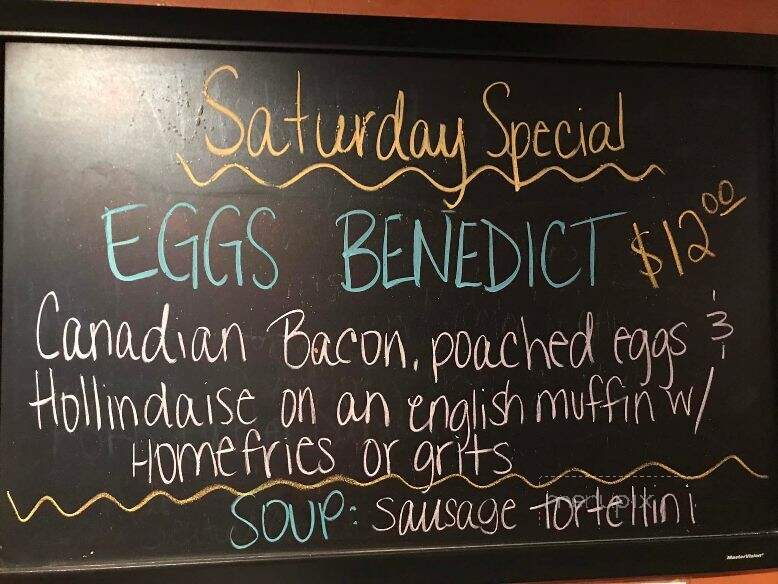 Saturday Special
EGGS BENEDICT $12.00
Canadian Bacon, poached eggs &
Hollindaise on an english muffin w/
Homefries or grits
SOUP: sausage tortellini
menupix
MasterVision